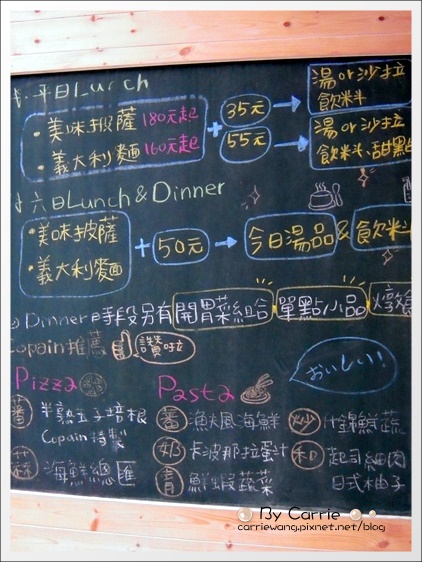 平日Lunch
•美味披薩 180元起
•義大利麵 160元起
+ 35元 → 湯or沙拉 飲料
55元 → 湯or沙拉 飲料、甜點
六日Lunch & Dinner
•美味披薩
•義大利麵
+ 50元 → 今日湯品 & 飲料
Dinner 時段另有 開胃菜組合 單點小品
Copain推薦 讚啦
おいしい!
Pizza
蕃 半熟玉子培根
Copain特製
海鮮總匯
Pasta
蕃 漁夫風海鮮
奶 卡波那拉蛋汁
青 鮮蝦蔬菜
炒 什錦鮮蔬
和 起司細肉
日式柚子
By Carrie
carriewang.pixnet.net/blog